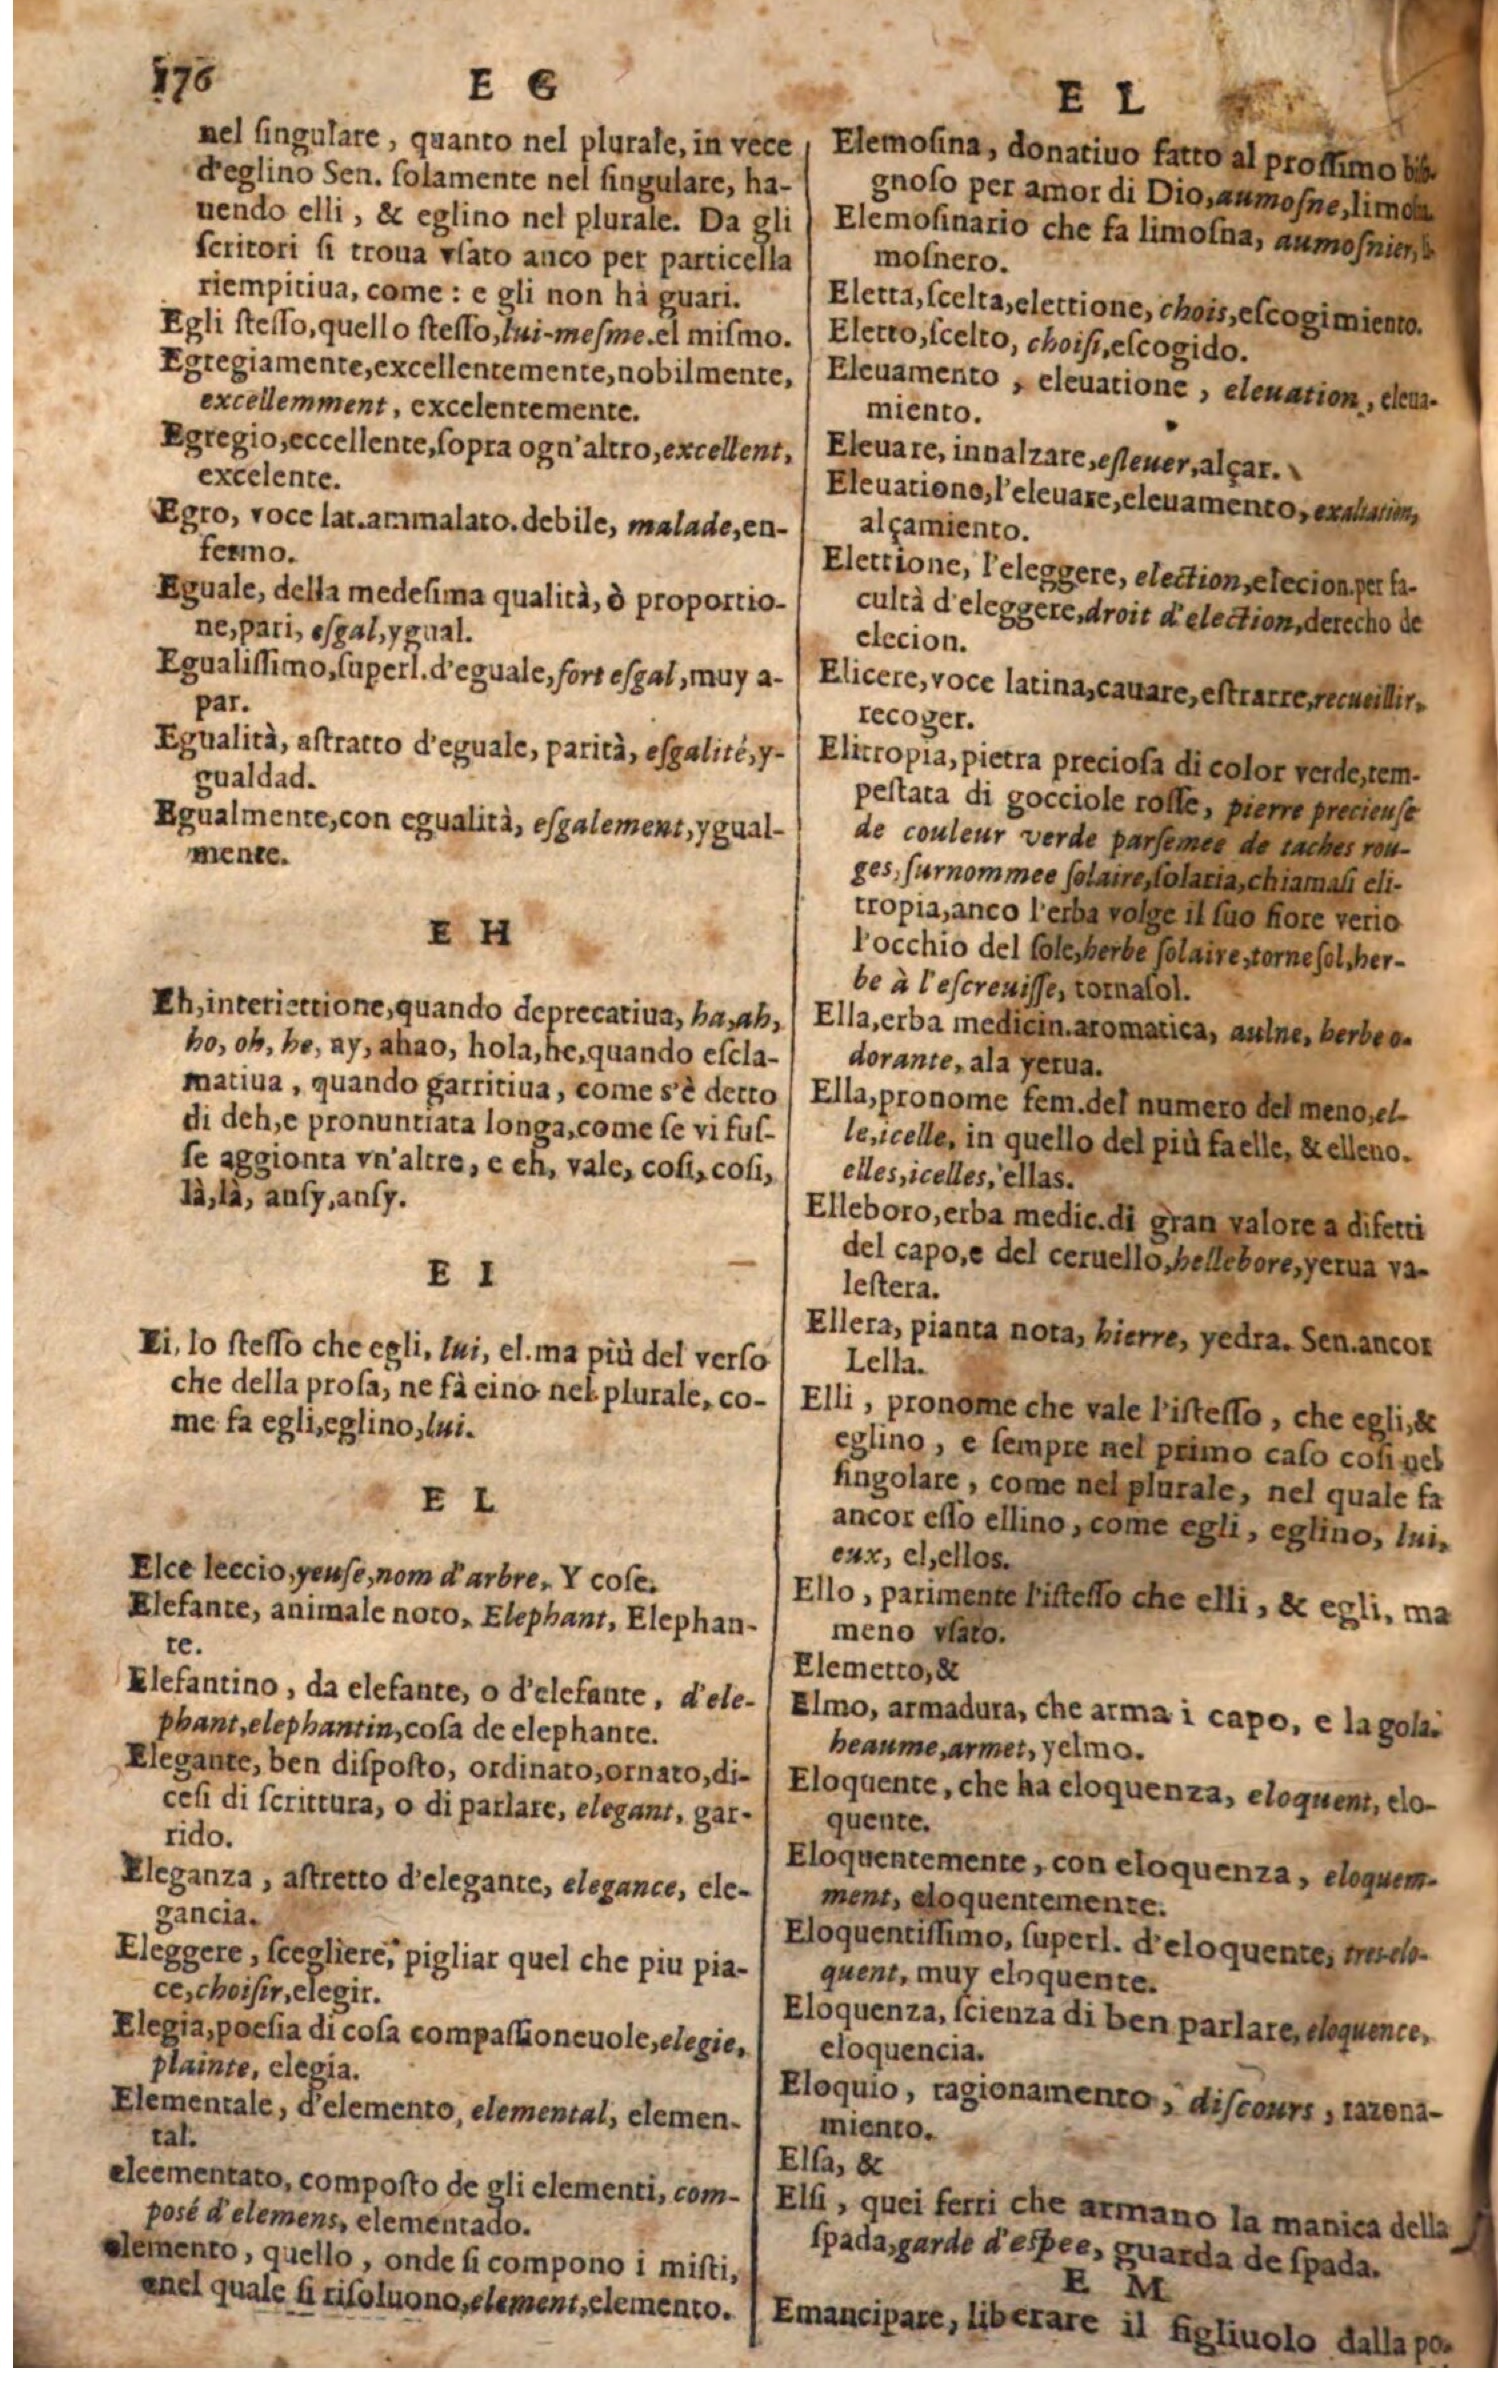 176
E G
nel ſingulare, quanto nel plurale, in vece
d'eglino Sen. ſolamente nel ſingulare, ha-
uendo elli, & eglino nel plurale. Da gli
ſcritori ſi troua vſato anco per particella
riempitiua, come: e gli non hà guari.
Egli ſteſſo, quello ſteſſo, lui-meſme. el miſmo.
Egregiamente, excellentemente, nobilmente,
excellemment, excelentemente.
Egregio, eccellente, ſopra ogn'altro, excellent,
excelente.
Egro, voce lat. ammalato. debile, malade, en-
fermo.
Eguale, della medeſima qualità, ò proportio-
ne, pari, eſgal, ygual.
Egualiſſimo, ſuperl. d'eguale, fort eſgal, muy a-
par.
Egualità, aſtratto d'eguale, parità, eſgalité, y-
gualdad.
Egualmente, con egualità, eſgalement, ygual-
mente.
E H
Eh, interiettione, quando deprecatiua, ha, ah,
ho, oh, he, ay, ahao, hola, he, quando eſcla-
matiua, quando garritiua, come s'è detto
di deh, e pronuntiata longa, come ſe vi fuſ-
ſe aggionta vn'altre, e eh, vale, coſi, coſi,
là, là, anſy, anſy.
E I
Ei, lo ſteſſo che egli, lui, el. ma più del verſo
che della proſa, ne fà eino nel plurale, co-
me fa egli, eglino, lui.
E L
Elce leccio, yeuſe, nom d'arbre, Y coſe.
Elefante, animale noto, Elephant, Elephan-
te.
Elefantino, da elefante, o d'elefante, d'ele-
phant, elephantin, coſa de elephante.
Elegante, ben diſpoſto, ordinato, ornato, di-
ceſi di ſcrittura, o di parlare, elegant, gar-
rido.
Eleganza, aſtretto d'elegante, elegance, ele-
gancia.
Eleggere, ſcegliere, pigliar quel che piu pia-
ce, choiſir, elegir.
Elegia, poeſia di coſa compaſſioneuole, elegie,
plainte, elegia.
Elementale, d'elemento, elemental, elemen-
tal.
elcementato, compoſto de gli elementi, com-
posé d'elemens, elementado.
elemento, quello, onde ſi compono i miſti,
enel quale ſi riſoluono, element, elemento.
E L
Elemoſina, donatiuo fatto al proſſimo biſo-
gnoſo per amor di Dio, aumoſne, limoſna.
Elemoſinario che fa limoſna, aumoſnier,
moſnero.
Eletta, ſcelta, elettione, chois, eſcogimiento.
Eletto, ſcelto, choiſi, eſcogido.
Eleuamento, eleuatione, eleuation, eleua-
miento.
Eleuare, innalzare, eſleuer, alçar.
Eleuatione, l'eleuare, eleuamento, exaltation,
alçamiento.
Elettione, l'eleggere, election, elecion. per fa-
cultà d'eleggere, droit d'election, derecho de
elecion.
Elicere, voce latina, cauare, eſtrarre, recueillir,
recoger.
Elitropia, pietra precioſa di color verde, tem-
peſtata di gocciole roſſe, pierre precieuſe
de couleur verde parſemee de taches rou-
ges, ſurnommee ſolaire, ſolaria, chiamaſi eli-
tropia, anco l'erba volge il ſuo fiore verſo
l'occhio del ſole, herbe ſolaire, torneſol, her-
be à l'eſcreuiſſe, tornaſol.
Ella, erba medicin. aromatica, aulne, herbe o-
dorante, ala yerua.
Ella, pronome fem. del numero del meno, el-
le, icelle, in quello del più fa elle, & elleno.
elles, icelles, ellas.
Elleboro, erba medic. di gran valore a difetti
del capo, e del ceruello, hellebore, yerua va-
leſtera.
Ellera, pianta nota, hierre, yedra. Sen. ancor
Lella.
Elli, pronome che vale l'iſteſſo, che egli, &
eglino, e ſempre nel primo caſo coſi nel
ſingolare, come nel plurale, nel quale fa
ancor eſſo ellino, come egli, eglino, lui,
eux, el, ellos.
Ello, parimente l'iſteſſo che elli, & egli, ma
meno vſato.
Elemetto, &
Elmo, armadura, che arma i capo, e la gola.
heaume, armet, yelmo.
Eloquente, che ha eloquenza, eloquent, elo-
quente.
Eloquentemente, con eloquenza, eloquem-
ment, eloquentemente.
Eloquentiſſimo, ſuperl. d'eloquente, tres-elo-
quent, muy eloquente.
Eloquenza, ſcienza di ben parlare, eloquence,
eloquencia.
Eloquio, ragionamento, diſcours, razona-
miento.
Elſa, &
Elſi, quei ferri che armano la manica della
ſpada, garde d'eſpee, guarda de ſpada.
E M
Emancipare, liberare il figliuolo dalla po-